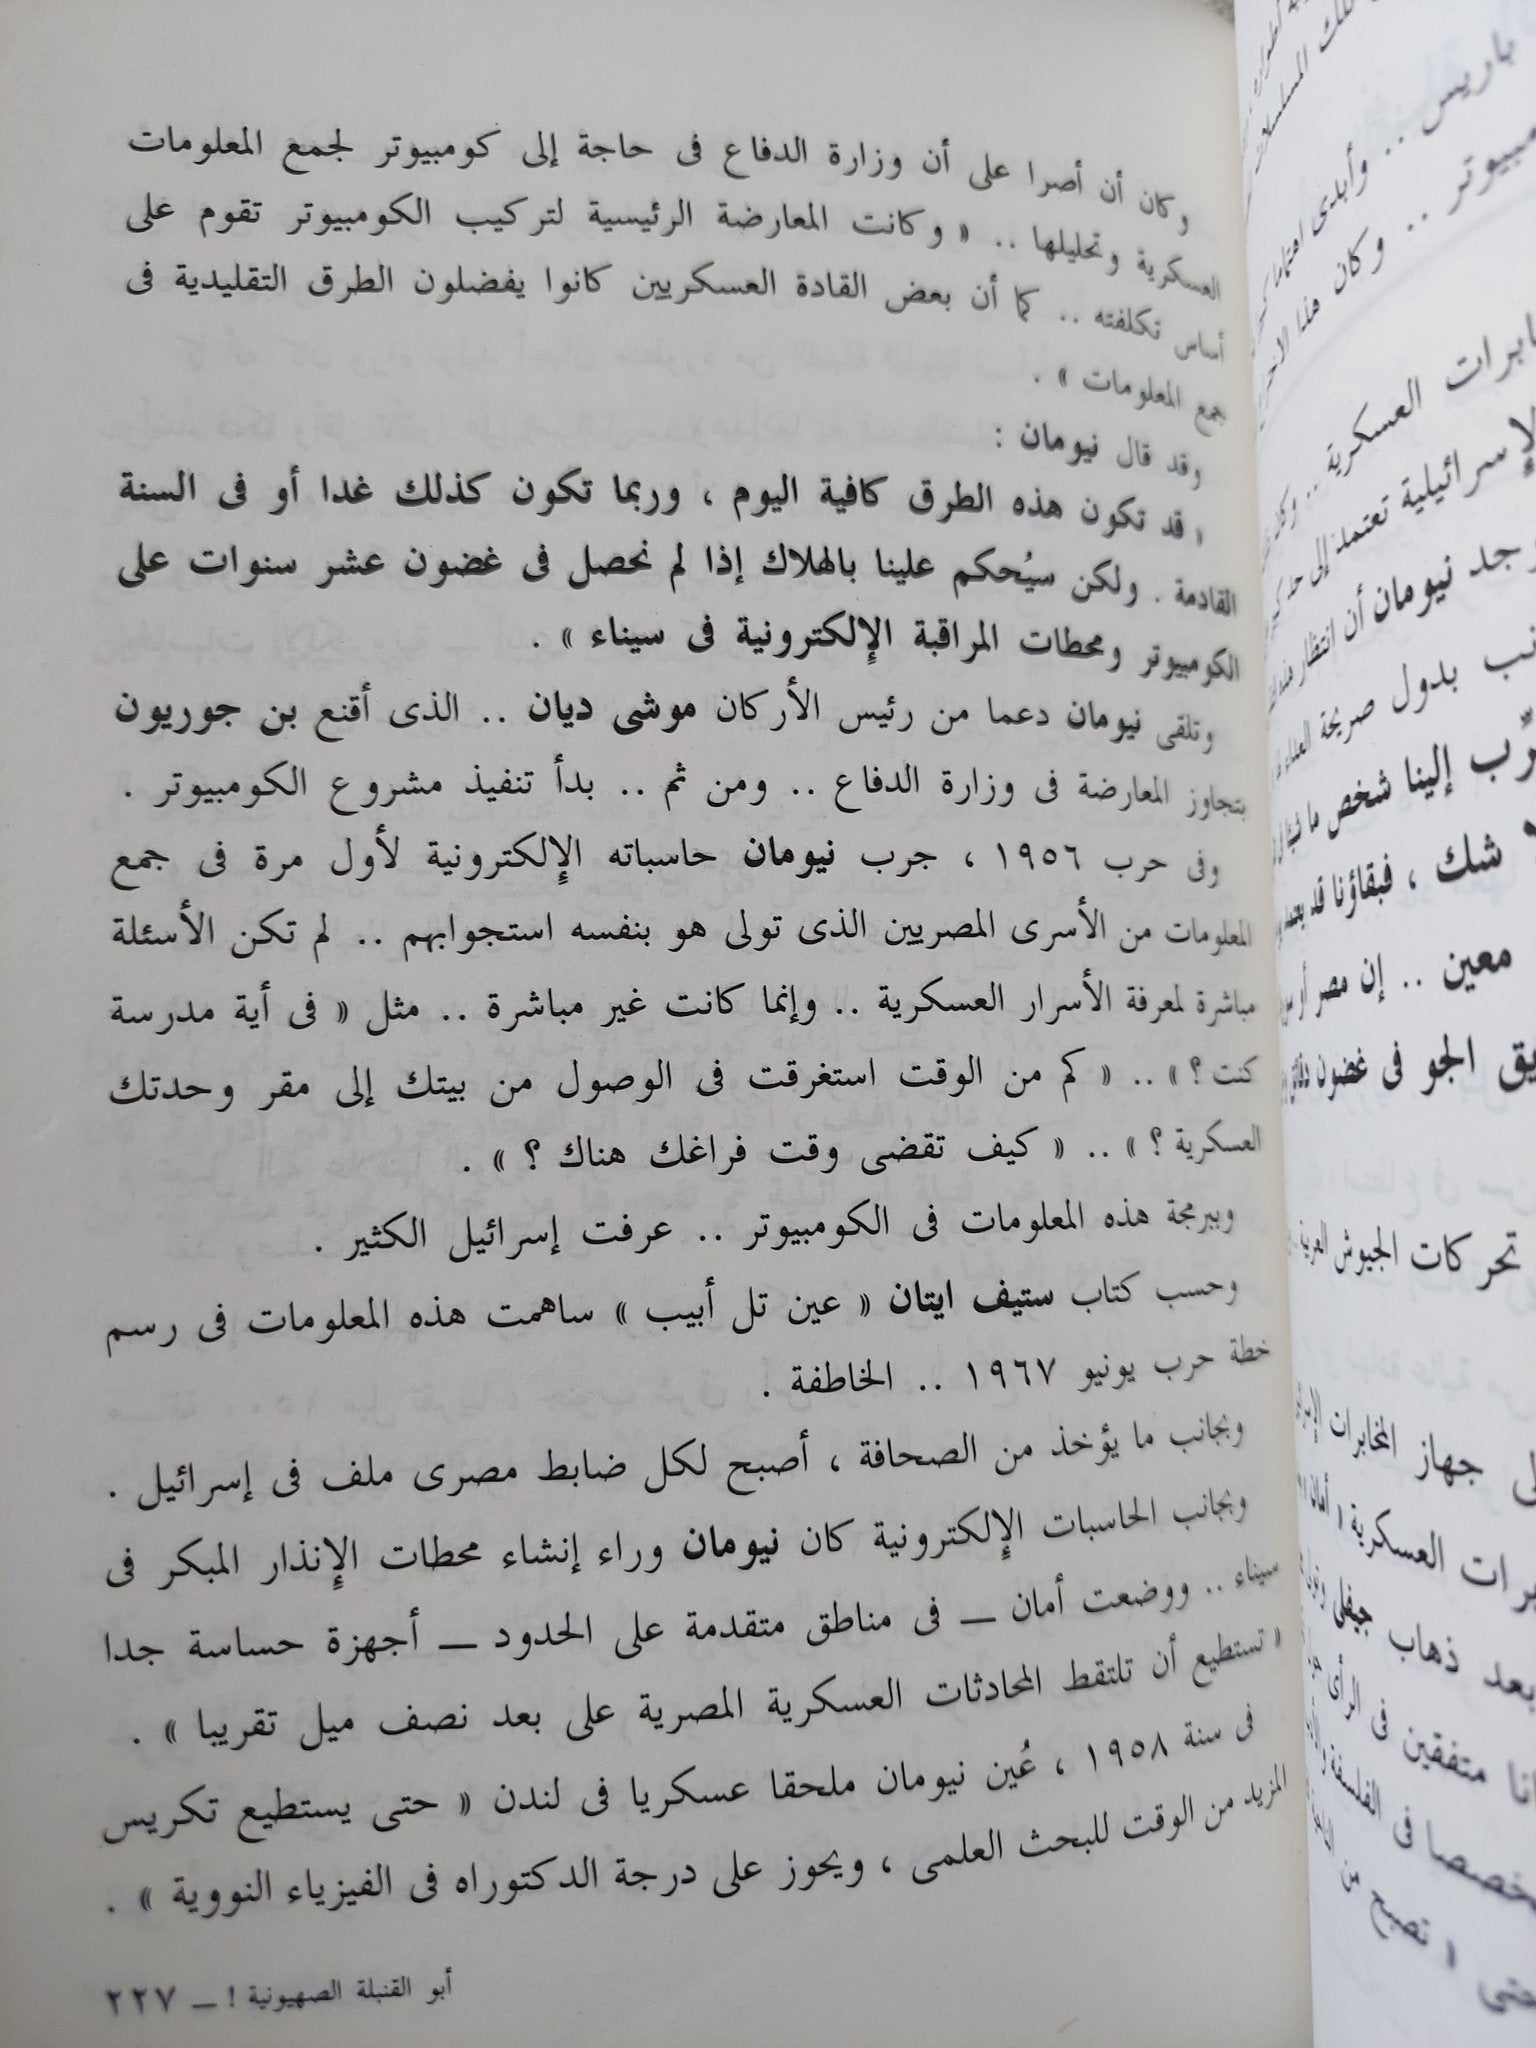 وكان أن أصرا على أن وزارة الدفاع فى حاجة إلى كومبيوتر لجمع المعلومات
العسكرية وتحليلها .. « وكانت المعارضة الرئيسية لتركيب الكومبيوتر تقوم على
أساس تكلفته .. كما أن بعض القادة العسكريين كانوا يفضلون الطرق التقليدية فى
جمع المعلومات » .
وقد قال نيومان :
« قد تكون هذه الطرق كافية اليوم ، وربما تكون كذلك غدا أو فى السنة
القادمة . ولكن سيُحكم علينا بالهلاك إذا لم نحصل فى غضون عشر سنوات على
الكومبيوتر ومحطات المراقبة الإلكترونية فى سيناء » .
وتلقى نيومان دعما من رئيس الأركان موشى ديان .. الذى أقنع بن جوريون
بتجاوز المعارضة فى وزارة الدفاع .. ومن ثم .. بدأ تنفيذ مشروع الكومبيوتر .
وفى حرب ١٩٥٦ ، جرب نيومان حاسباته الإلكترونية لأول مرة فى جمع
المعلومات من الأسرى المصريين الذى تولى هو بنفسه استجوابهم .. لم تكن الأسئلة
مباشرة لمعرفة الأسرار العسكرية .. وإنما كانت غير مباشرة .. مثل « فى أية مدرسة
كنت ؟ » .. « كم من الوقت استغرقت فى الوصول من بيتك إلى مقر وحدتك
العسكرية ؟ » .. « كيف تقضى وقت فراغك هناك ؟ » .
وببرمجة هذه المعلومات فى الكومبيوتر .. عرفت إسرائيل الكثير .
وحسب كتاب ستيف ايتان « عين تل أبيب » ساهمت هذه المعلومات فى رسم
خطة حرب يونيو ١٩٦٧ .. الخاطفة .
وبجانب ما يؤخذ من الصحافة ، أصبح لكل ضابط مصرى ملف فى إسرائيل .
وبجانب الحاسبات الإلكترونية كان نيومان وراء إنشاء محطات الإنذار المبكر فى
سيناء .. ووضعت أمان ــ فى مناطق متقدمة على الحدود ــ أجهزة حساسة جدا
« تستطيع أن تلتقط المحادثات العسكرية المصرية على بعد نصف ميل تقريبا » .
فى سنة ١٩٥٨ ، عُين نيومان ملحقا عسكريا فى لندن « حتى يستطيع تكريس
المزيد من الوقت للبحث العلمى ، ويحوز على درجة الدكتوراه فى الفيزياء النووية » .
أبو القنبلة الصهيونية ! ــ ٢٢٧
باريس .. وأبدى
.. وكان هذا
العسكرية ..
تعتمد إلى حد
نيومان أن انتظار
بدول صريحة
إلينا شخص ما
شك ، فبقاؤنا قد
معين .. إن مصر
الجو فى غضون
تحركات الجيوش العربية
جهاز المخابرات
العسكرية « أمان
ذهاب جيفلى
متفقين فى الرأى
فى الفلسفة
« تصبح من